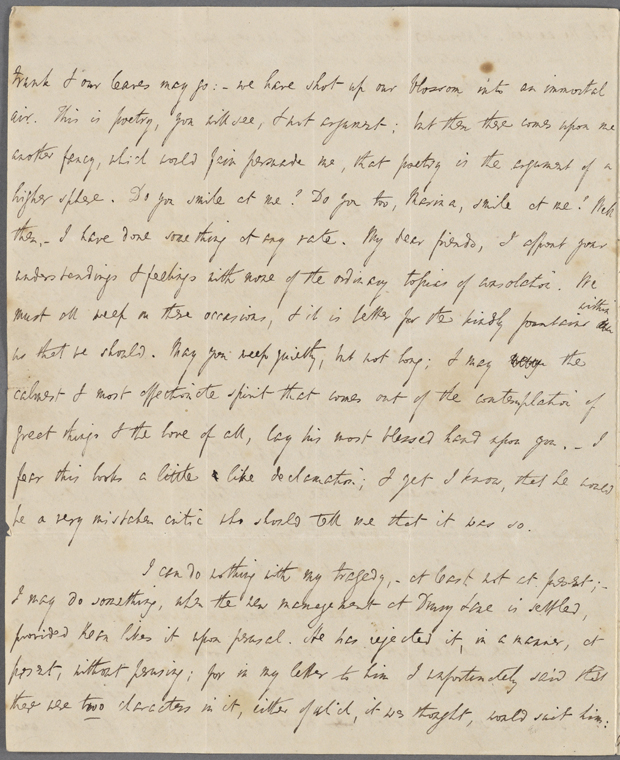 trunk & our leaves may go: – we have shot up our blossom into an immortal
air. This is poetry, you will see, & not argument; but then there comes upon me
another fancy, which would fain persuade me, that poetry is the argument of a
higher sphere. Do you smile at me? Do you too, Marina, smile at me? Well
then, – I have done something at any rate. My dear friends, I affront your
understandings & feelings with none of the ordinary topics of consolation. We
must all weep on these occasions, & it is better for the kindly fountains within
us that we should. May you weep quietly, but not long; & may the
calmest & most affectionate spirit that comes out of the contemplation of
great things & the love of all, lay his most blessed hand upon you. – I
fear this looks a little like declamation; & yet I know, that he would
be a very mistaken critic who should tell me that it was so.
I can do nothing with my tragedy, – at least not at present; –
I may do something, when the new management at Drury Lane is settled,
provided Kean likes it upon perusal. He has rejected it, in a manner, at
present, without perusing; for in my letter to him I unfortunately said that
there were two characters in it, either of which, it was thought, would suit him: